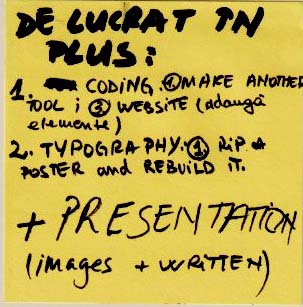 DE LUCRAT IN
PLUS:
1. CODING. ① MAKE ANOTHER
TOOL; ② WEBSITE (adaugă
elemente)
2. TYPOGRAPHY. ① RIP A
POSTER and REBUILD IT.
+ PRESENTATION
(images + WRITTEN)